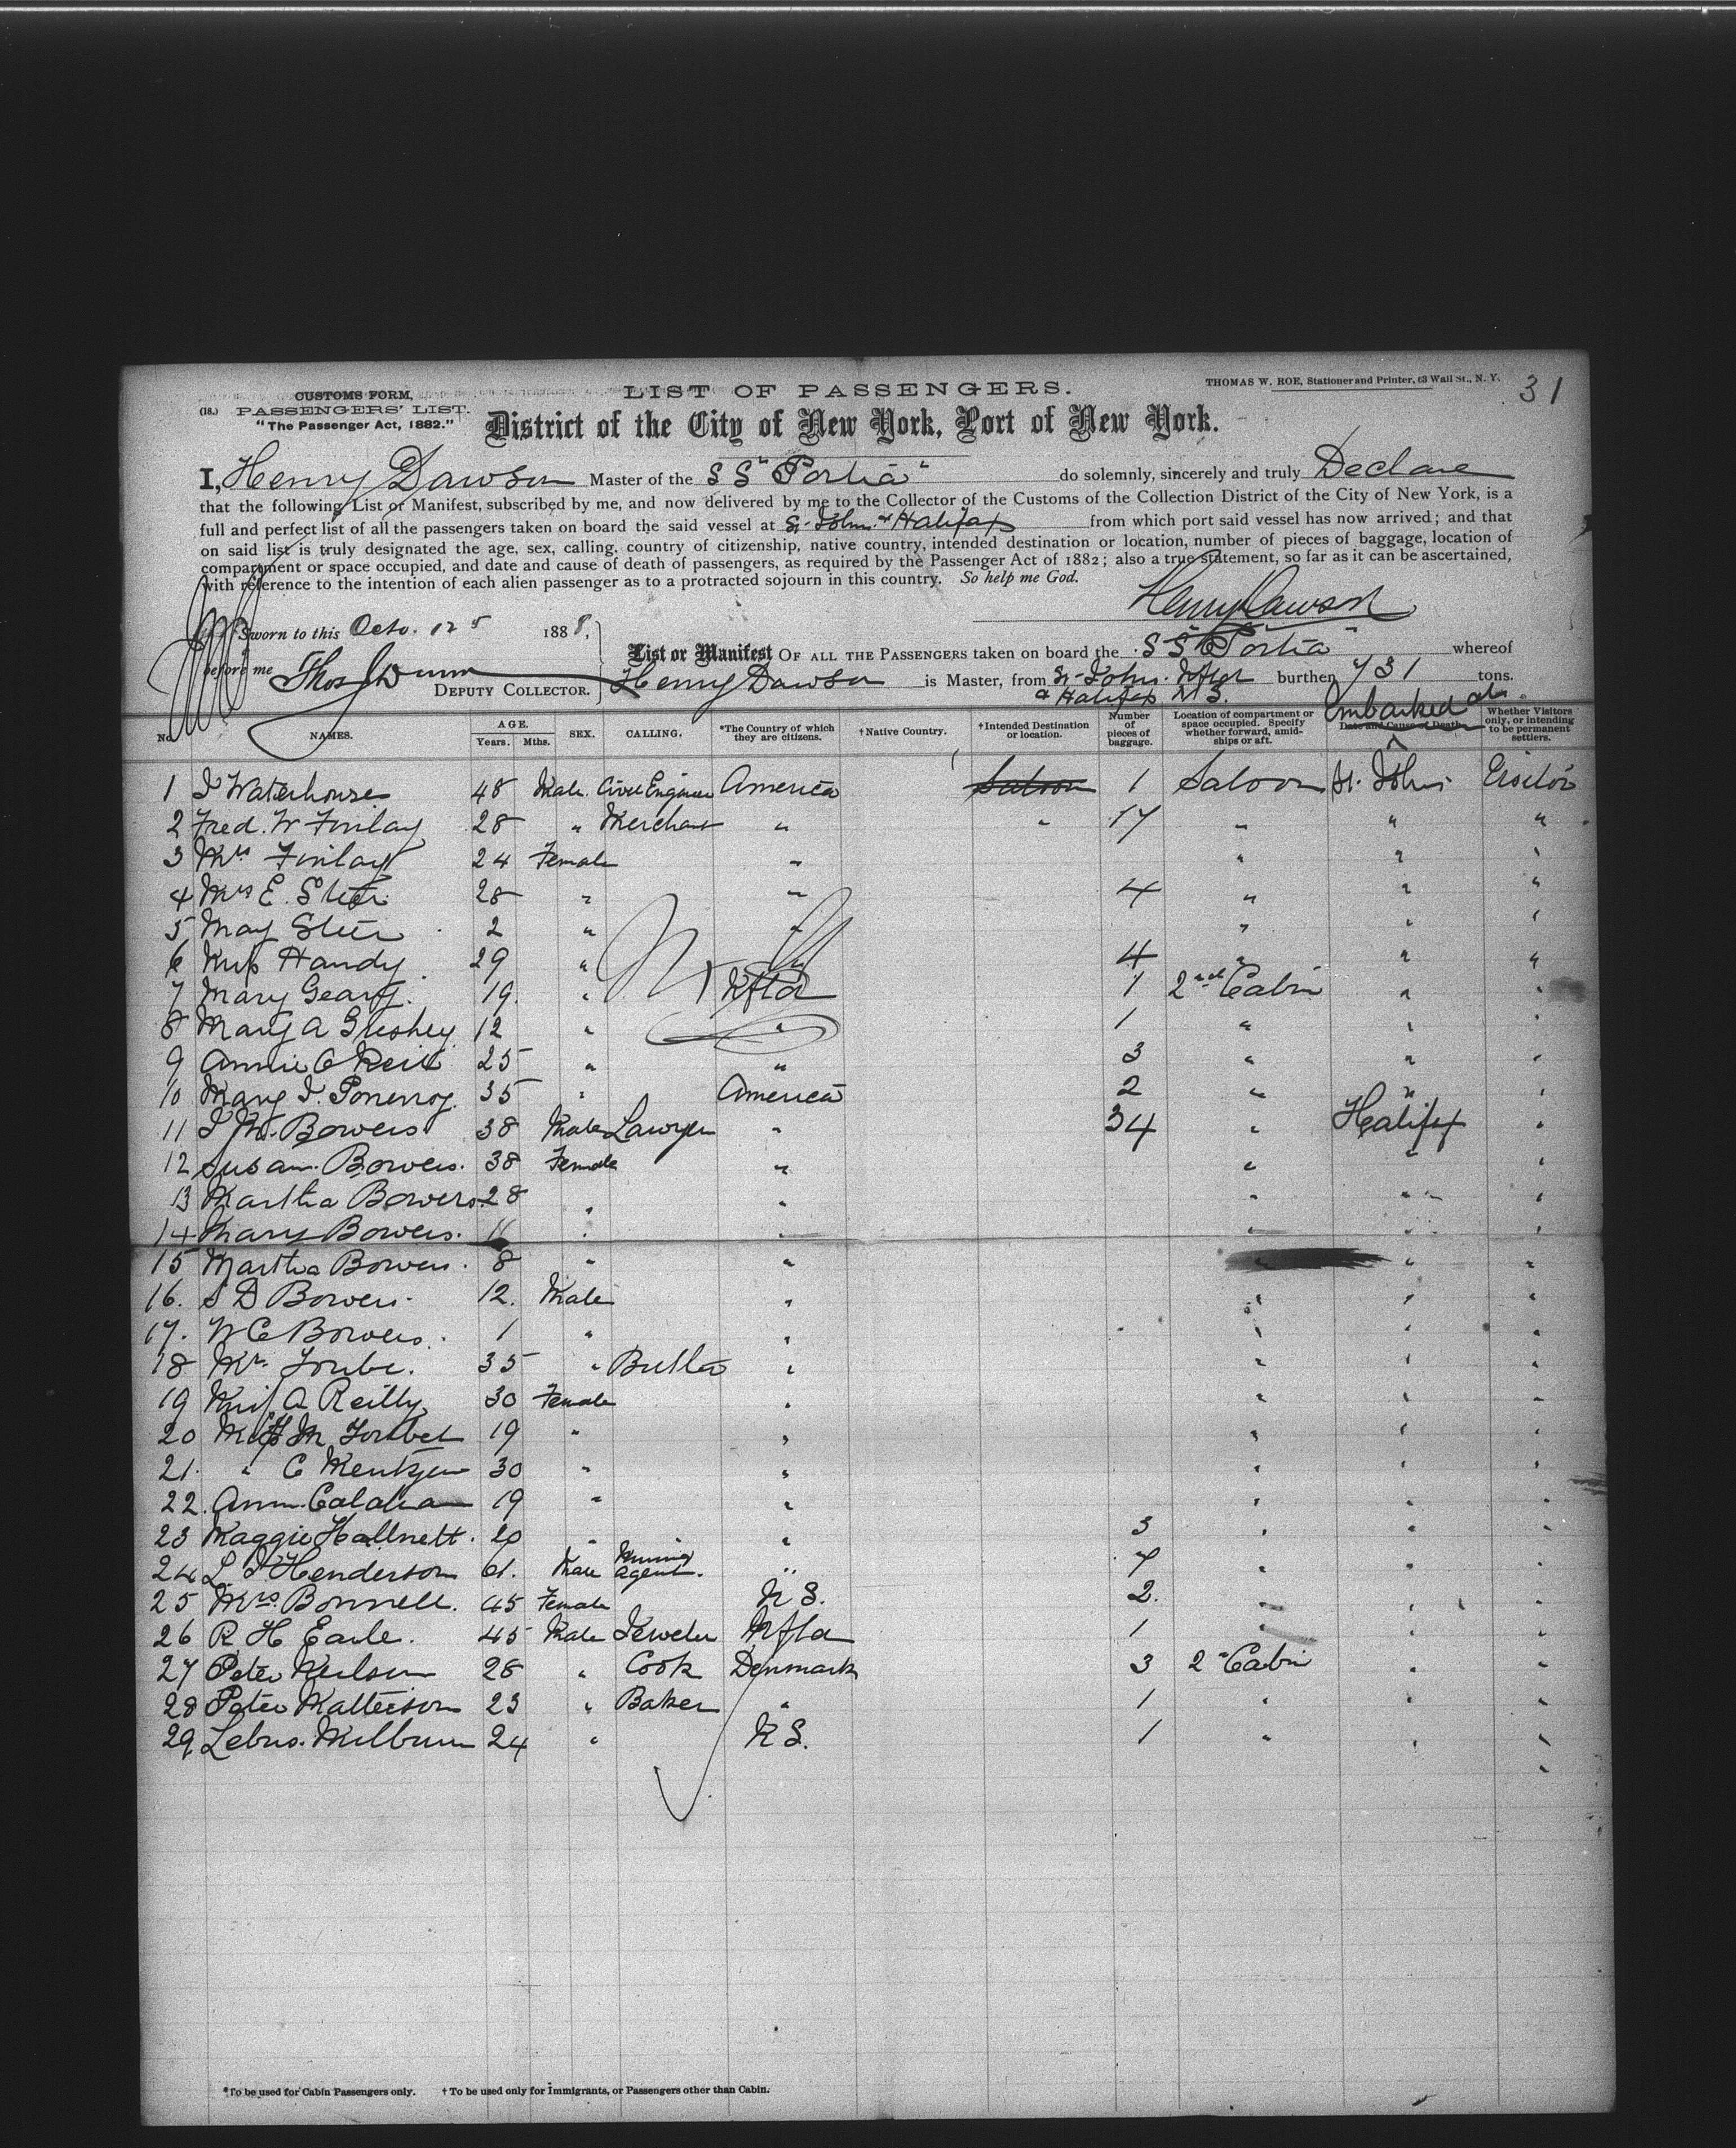 LIST OF PASSENGERS.
THOMAS W. ROE, Stationer and Printer, 63 Wall St., N. Y.
31
CUSTOMS FORM,
(18.) PASSENGERS' LIST.
"The Passenger Act, 1882."
District of the City of New York, Port of New York.
I, Henry Dawson Master of the S S "Portia" do solemnly, sincerely and truly Declare
that the following List or Manifest, subscribed by me, and now delivered by me to the Collector of the Customs of the Collection District of the City of New York, is a
full and perfect list of all the passengers taken on board the said vessel at St. Johns & Halifax from which port said vessel has now arrived; and that
on said list is truly designated the age, sex, calling, country of citizenship, native country, intended destination or location, number of pieces of baggage, location of
compartment or space occupied, and date and cause of death of passengers, as required by the Passenger Act of 1882; also a true statement, so far as it can be ascertained,
with reference to the intention of each alien passenger as to a protracted sojourn in this country. So help me God.
Henry Dawson
Sworn to this Octo. 12 1888,
before me Thos J Dunn
DEPUTY COLLECTOR.
List or Manifest OF ALL THE PASSENGERS taken on board the S S "Portia" whereof
Henry Dawson is Master, from St. Johns. Nfld burthen 731 tons.
& Halifax N S.
No. NAMES. AGE. Years. Mths. SEX. CALLING. *The Country of which they are citizens. †Native Country. †Intended Destination or location. Number of pieces of baggage. Location of compartment or space occupied. Specify whether forward, amidships or aft. Date and Cause of Death. Embarked at Whether Visitors only, or intending to be permanent settlers.
1 J Waterhouse 48 Male Civil Engineer America Saloon 1 Saloon St. Johns Visitor
2 Fred. W Finlay 28 " Merchant " " 17 " " "
3 Mrs Finlay 24 Female " " " "
4 Mrs E. Steer 28 " " 4 " " "
5 May Steer 2 " " " " "
6 Miss Handy 29 " " 4 " " "
7 Mary Geary 19 " Nfld 1 2nd Cabin " "
8 Mary A 12 " " 1 " " "
9 Annie 25 " " 3 " " "
10 Mary J. Pomeroy 35 " America 2 " " "
11 J W. Bowers 38 Male Lawyer " 34 " Halifax "
12 Susan Bowers 38 Female " " " "
13 Martha Bowers 28 " " " " "
14 Mary Bowers 11 " " " " "
15 Martha Bowers 8 " " " " "
16. S D Bowers 12. Male " " " "
17. W C Bowers 1 " " " " "
18 Mr. 35 " Butler " " " "
19 Miss A Reilly 30 Female " " " "
20 Miss M 19 " " " " "
21. " C 30 " " " " "
22. Ann Calahan 19 " " " " "
23 Maggie Hallnett 20 " " 3 " " "
24 L J Henderson 61. Male Mining Agent. " 7 " " "
25 Mrs. Bonnell. 45 Female N S. 2. " " "
26 R H Earle. 45 Male Jeweler Nfld 1 " " "
27 Peter Neilson 28 " Cook Denmark 3 2" Cabin " "
28 Peter Matterson 23 " Baker " 1 " " "
29 Milburn 24 " N S. 1 " " "
*To be used for Cabin Passengers only. †To be used only for Immigrants, or Passengers other than Cabin.